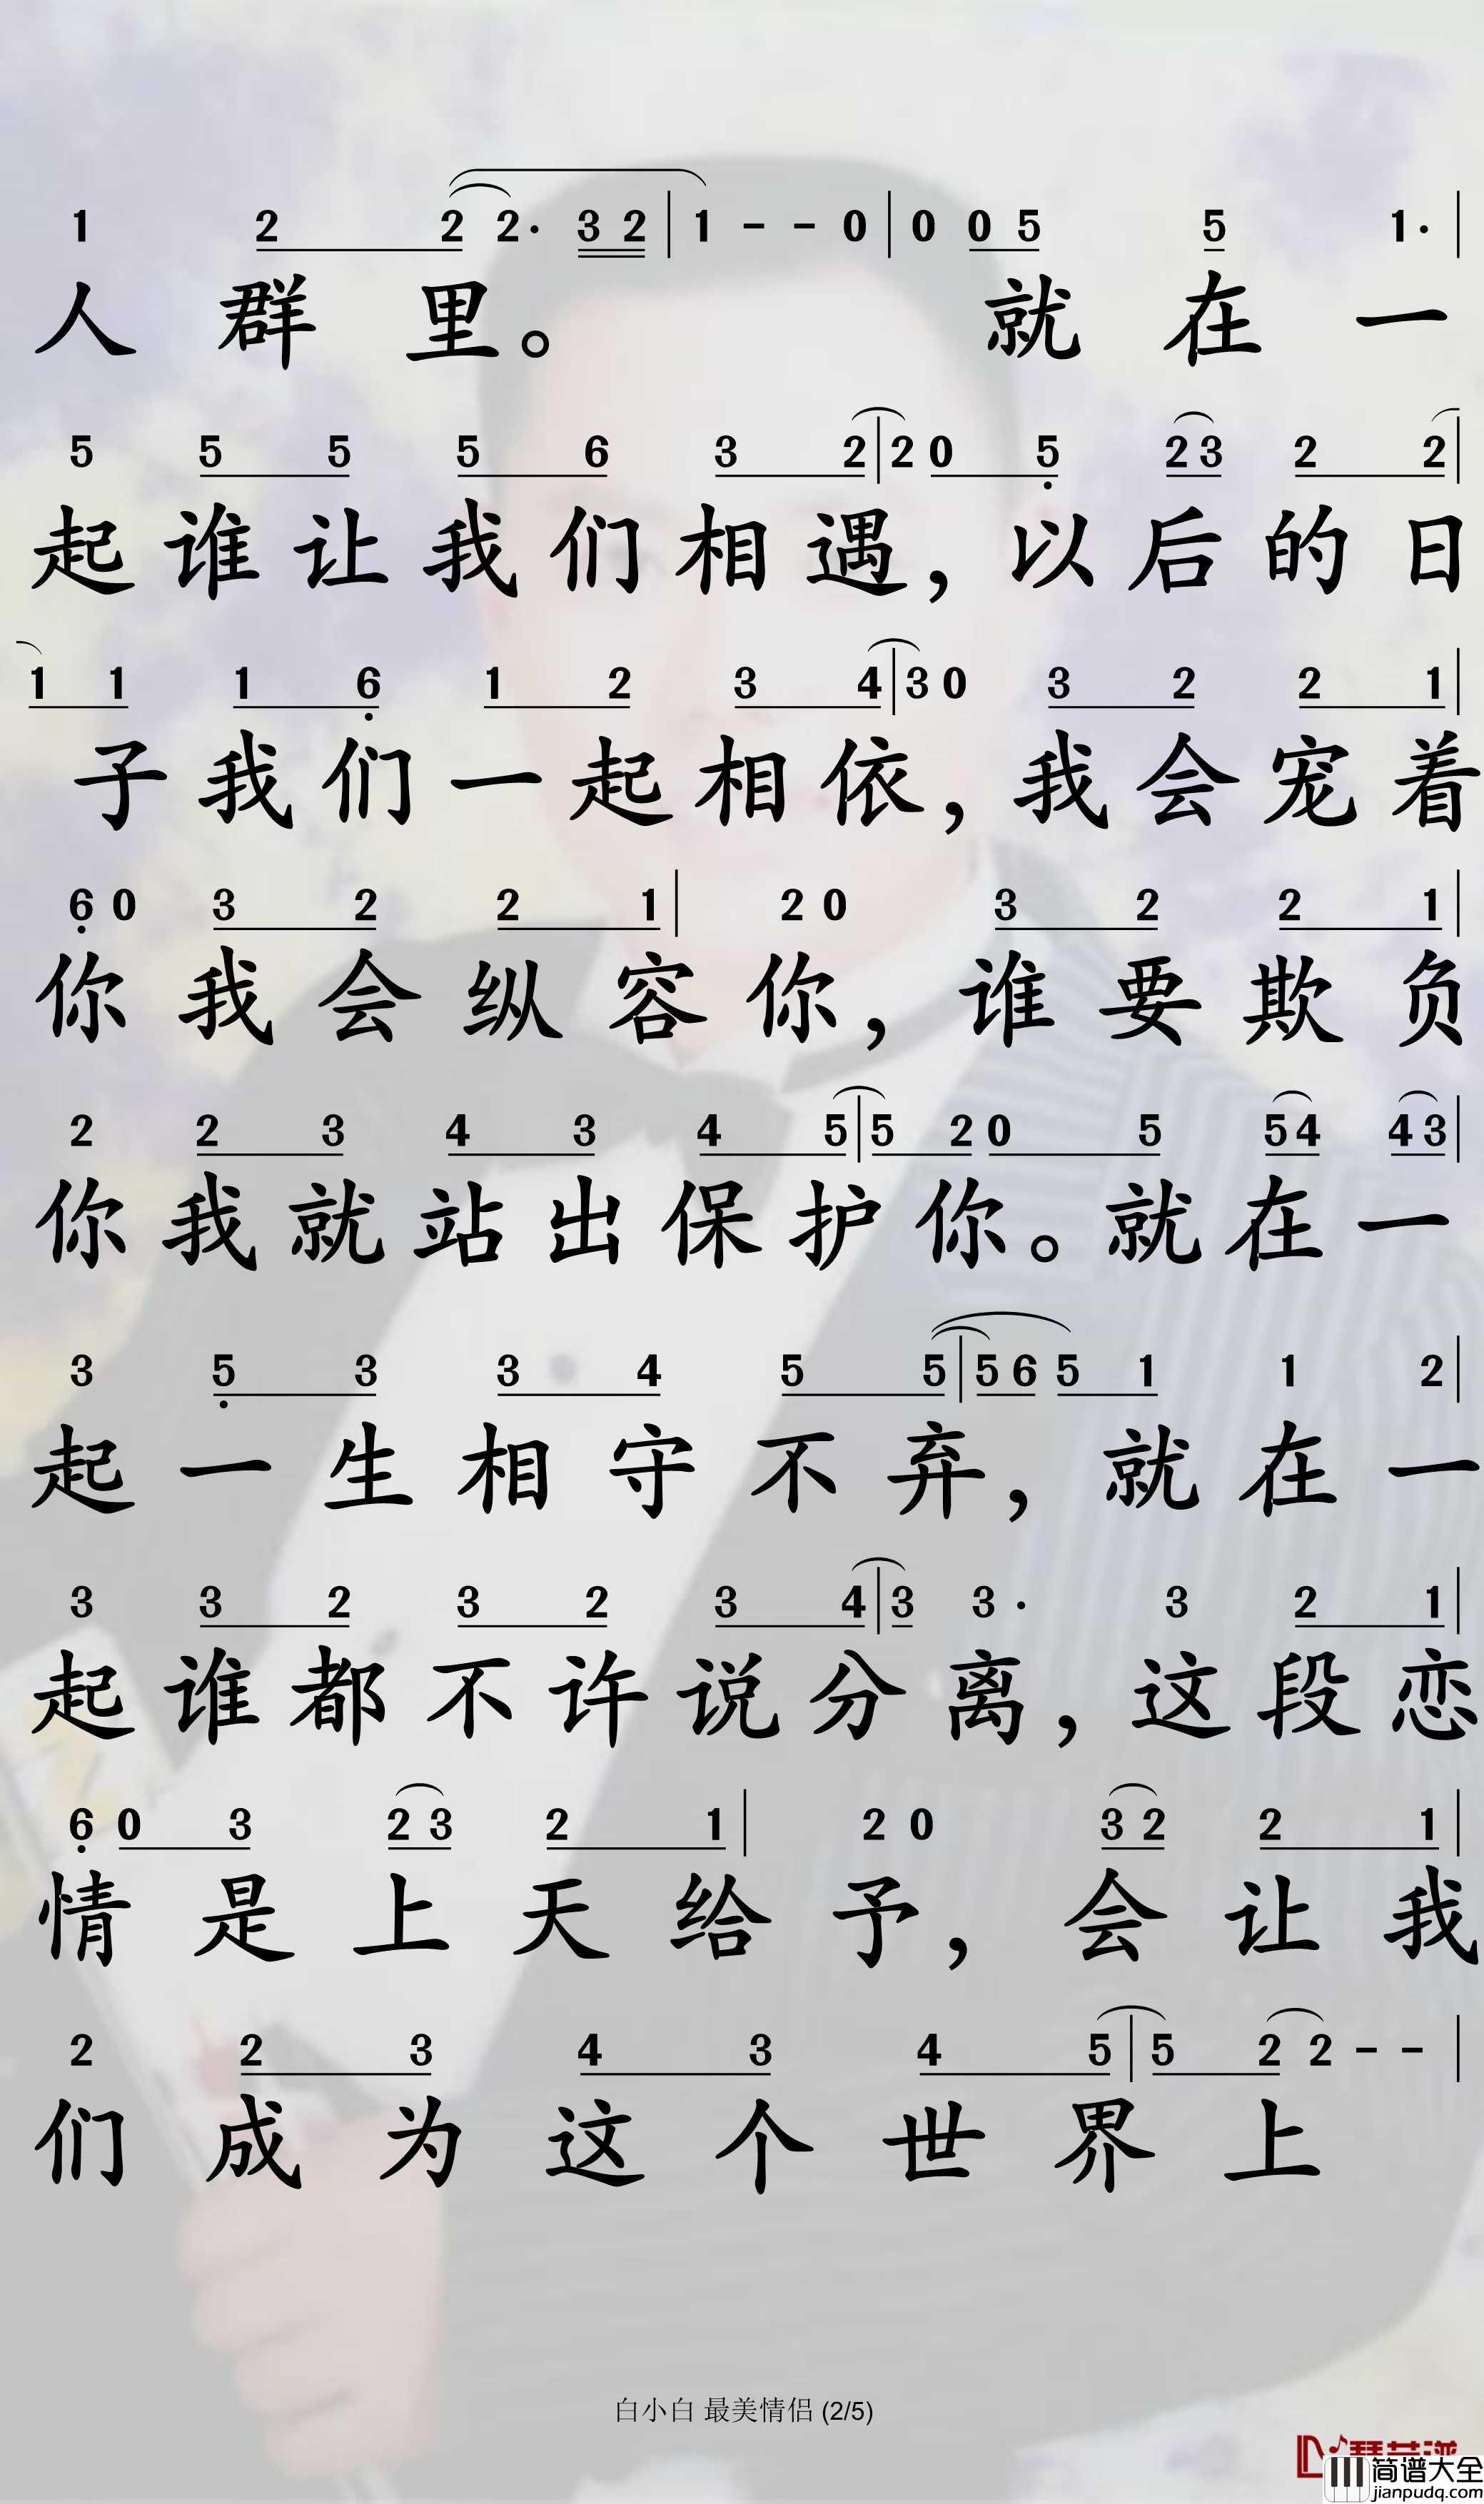 1 2 2 2· 3 2 | 1 - - 0 | 0 0 5 5 1· |
人群里。 就在一
5 5 5 5 6 3 2 | 2 0 5 2 3 2 2 |
起谁让我们相遇，以后的日
1 1 1 6 1 2 3 4 | 3 0 3 2 2 1 |
子我们一起相依，我会宠着
6 0 3 2 2 1 | 2 0 3 2 2 1 |
你我会纵容你，谁要欺负
2 2 3 4 3 4 5 | 5 2 0 5 5 4 4 3 |
你我就站出保护你。就在一
3 5 3 3 4 5 5 | 5 6 5 1 1 2 |
起一生相守不弃，就在一
3 3 2 3 2 3 4 | 3 3· 3 2 1 |
起谁都不许说分离，这段恋
6 0 3 2 3 2 1 | 2 0 3 2 2 1 |
情是上天给予，会让我
2 2 3 4 3 4 5 | 5 2 2 - - |
们成为这个世界上
白小白 最美情侣 (2/5)
简谱大全
jianpudq.com